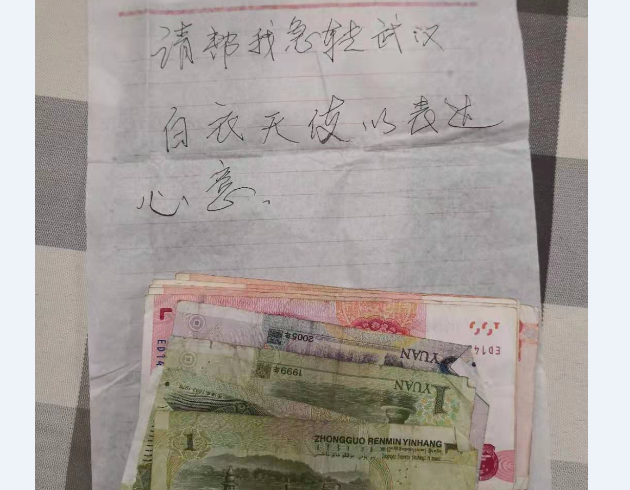 请帮我急转武汉
白衣天使以表达
心意.
ED14
100
ED14
2005年
YUAN
1999年
1 YUAN
1
ZHONGGUO RENMIN YINHANG